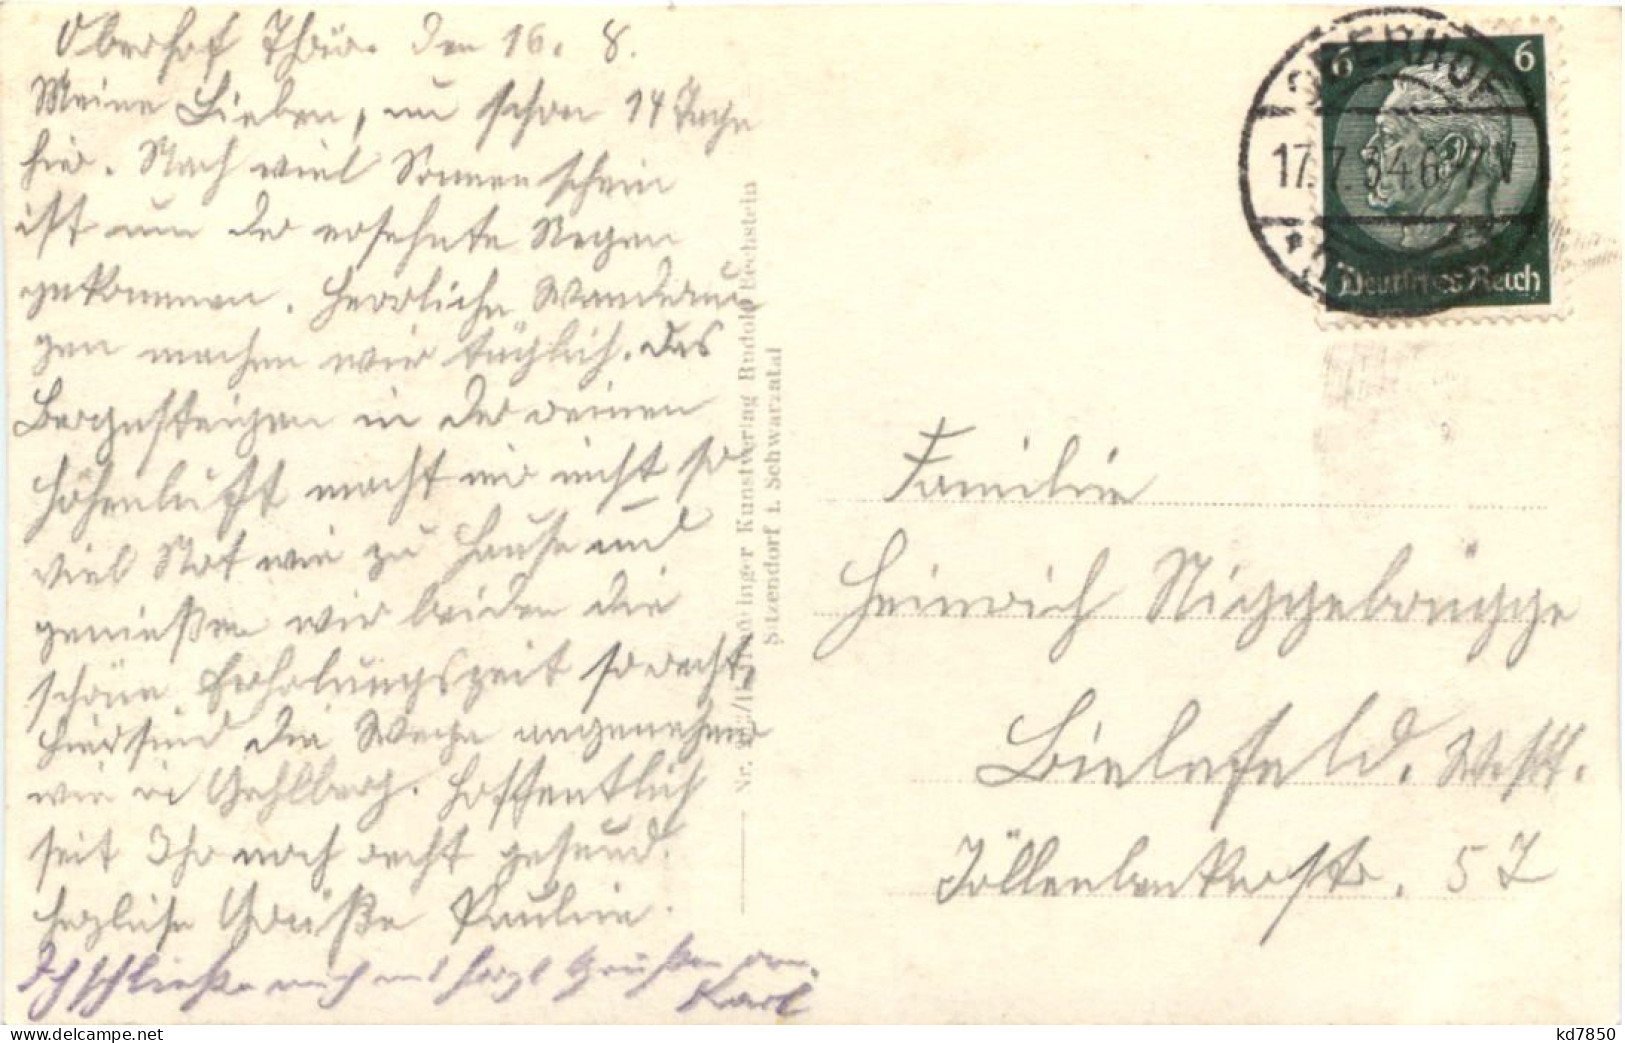 Oberhof Thür. den 16. 8.
Meine Lieben, nu schon 14 Tage
hier. Nach viel Sonnenschein
ist nun der ersehnte Regen
gekommen. Herrliche Wanderun
gen machen wir täglich. Das
Bergesteigen in der reinen
Höhenluft macht mir nicht so
viel Not wie zu Hause und
genießen wir beiden die
schöne Erholungszeit so recht,
hier sind die Wege angenehmer
wie in Gehlberg. Hoffentlich
seit Ihr noch recht gesund.
herzliche Grüße Pauline.
Ich schließe mich mit herzl Grüßen an.
Karl
Kunstverlag Rudolf Bechstein
Sitzendorf i. Schwarzatal
OBERHOF
17.7.34.6-7V
6 6
Deutsches Reich
Familie
Heinrich Niggebrügge
Bielefeld. Westf.
Jöllenbeckerstr. 57
kd7850